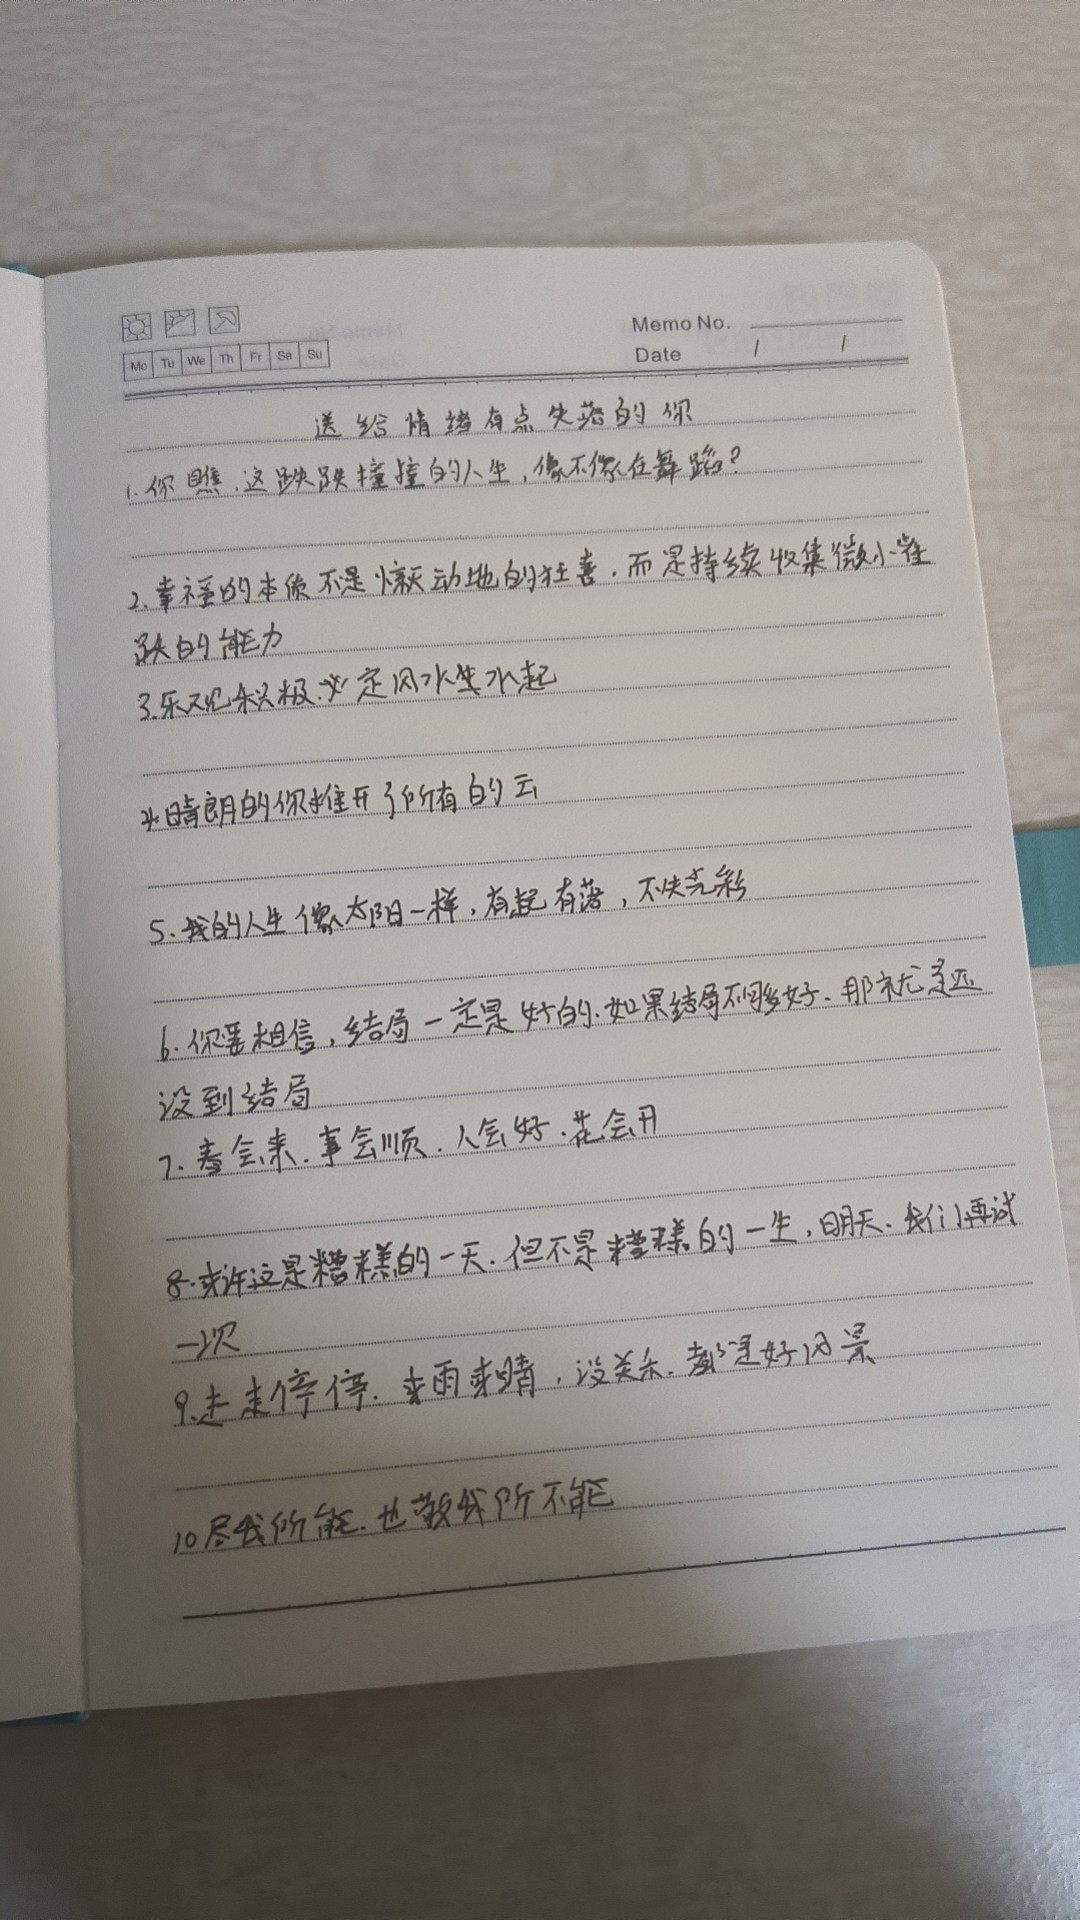 Memo No.
Mo Tu We Th Fr Sa Su
Date / /
送给情绪有点失落的你
1.你瞧,这跌跌撞撞的人生,像不像在舞蹈?
2.幸福的本质不是惊天动地的狂喜,而是持续收集微小雀
跃的能力
3.乐观积极,必定风水生水起
4.晴朗的你推开了所有的云
5.我的人生像太阳一样,有起有落,不失光彩
6.你要相信,结局一定是好的.如果结局不够好.那就是还
没到结局
7.春会来.事会顺.人会好.花会开
8.或许这是糟糕的一天.但不是糟糕的一生,明天.我们再试
一次
9.走走停停.来雨来晴,没关系.都是好风景
10尽我所能.也敬我所不能